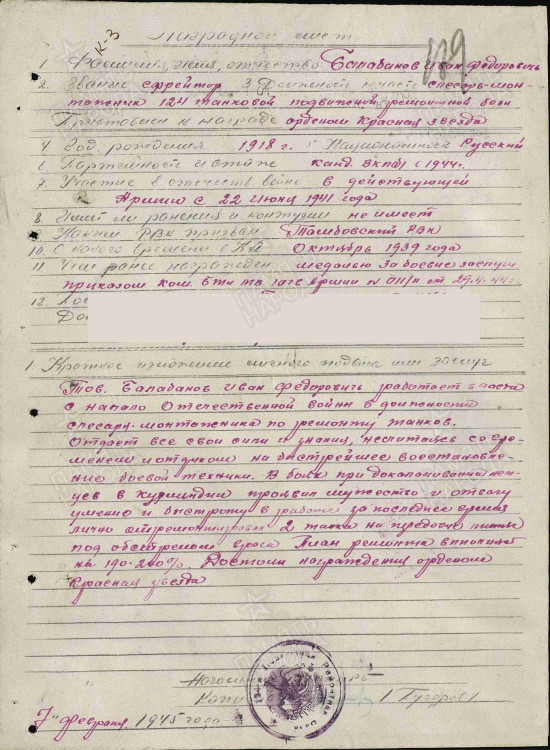 К-3
Наградной лист
189
1. Фамилия, имя, отчество Балабанов Иван Федорович
2. Звание ефрейтор 3 Должность, часть слесарь-мон-
тажник 124 танковой подвижной ремонтной базы
Представлен к награде орденом Красная звезда
4 Год рождения 1918 г. 5 Национальность Русский
6 Партийность и стаж канд. ВКП(б) с 1944г.
7. Участие в отечеств войне в действующей
Армии с 22 июня 1941 года
8 Имеет ли ранения и контузии не имеет
9 Каким РВК призван Тамбовский РВК
10. С какого времени в КА Октябрь 1939 года
11 Чем ранее награжден медалью За боевые заслуги
приказом ком. армии от 29.4.44г.
12.
1. Краткое изложение личного подвига или заслуг
Тов. Балабанов Иван Федорович работает в части
с начало Отечественной войны в должности
слесаря-монтажника по ремонту танков.
Отдает все свои силы и знания, несчитаясь со вре-
менем и отдыхом на быстрейшее восстановле-
ние боевой техники. В боях при доколачивании нем-
цев в Курляндии проявил мужество и отвагу
умение и быстроту в работе за последнее время
лично отремонтировал 2 танка на передовой линии
под обстрелом врага План ремонта выполняет
на 190-200%. Достоин награждения орденом
Красная звезда
7" февраля 1945 года